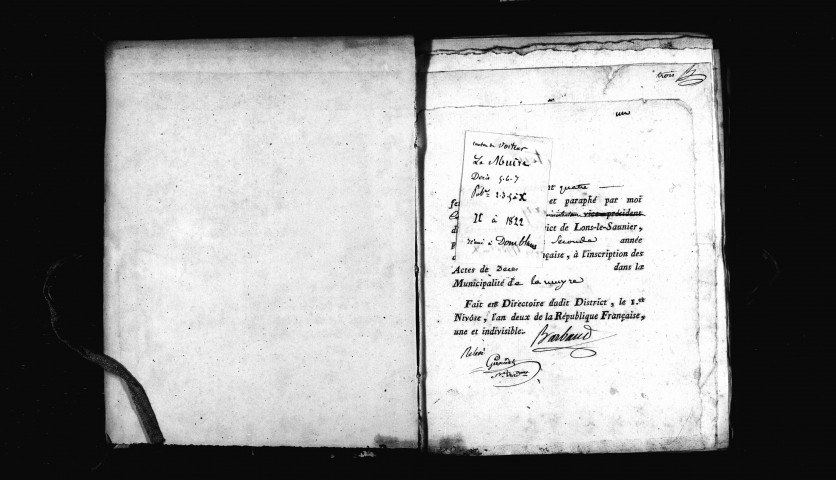 trois
un
canton de Voiteur
La Muire
Décès 5.6.7
Pubon 2.3.9 à X
IX à 1822
réuni à Domblans
quatre
et paraphé par moi
vice-président
ict de Lons-le-Saunier,
seconde année
çaise, à l'inscription des
Actes de Deces dans la
Municipalité de la muyre
Fait en Directoire dudit District, le 1.er
Nivôse, l'an deux de la République Française,
une et indivisible.
Barbaud